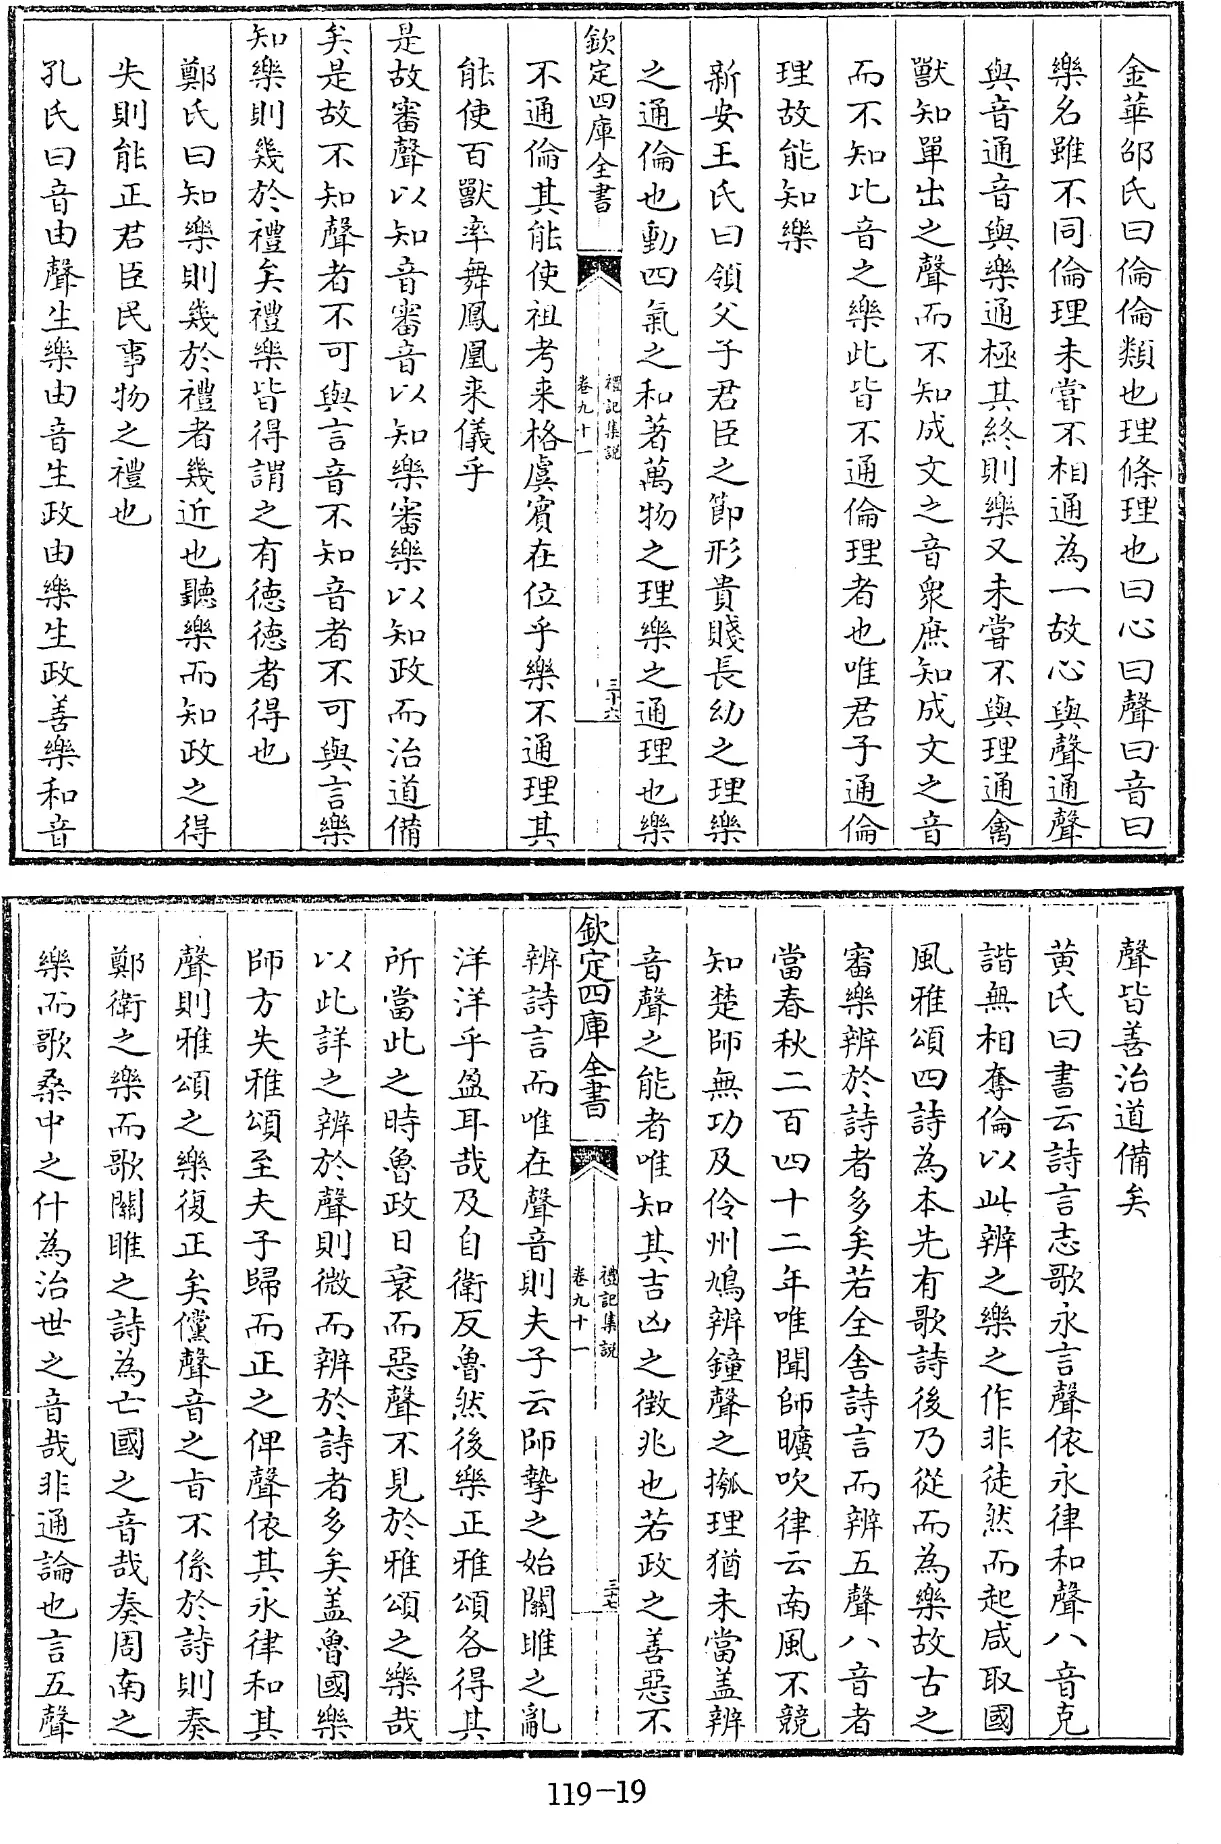 金華邵氏曰倫倫類也理條理也曰心曰聲曰音曰
樂名雖不同倫理未嘗不相通為一故心與聲通聲
與音通音與樂通極其終則樂又未嘗不與理通禽
獸知單出之聲而不知成文之音衆庶知成文之音
而不知比音之樂此皆不通倫理者也唯君子通倫
理故能知樂
新安王氏曰領父子君臣之節形貴賤長幼之理樂
之通倫也動四氣之和著萬物之理樂之通理也樂
欽定四庫全書
禮記集説
卷九十一
三十六
不通倫其能使祖考来格虞賓在位乎樂不通理其
能使百獸率舞鳳凰来儀乎
是故審聲以知音審音以知樂審樂以知政而治道備
矣是故不知聲者不可與言音不知音者不可與言樂
知樂則幾於禮矣禮樂皆得謂之有德德者得也
鄭氏曰知樂則幾於禮者幾近也聽樂而知政之得
失則能正君臣民事物之禮也
孔氏曰音由聲生樂由音生政由樂生政善樂和音
聲皆善治道備矣
黄氏曰書云詩言志歌永言聲依永律和聲八音克
諧無相奪倫以此辨之樂之作非徒然而起咸取國
風雅頌四詩為本先有歌詩後乃從而為樂故古之
審樂辨於詩者多矣若全舍詩言而辨五聲八音者
當春秋二百四十二年唯聞師曠吹律云南風不競
知楚師無功及伶州鳩辨鐘聲之摦理猶未當盖辨
音聲之能者唯知其吉凶之徴兆也若政之善惡不
欽定四庫全書
禮記集説
卷九十一
三十七
辨詩言而唯在聲音則夫子云師摯之始關雎之亂
洋洋乎盈耳哉及自衛反魯然後樂正雅頌各得其
所當此之時魯政日衰而惡聲不見於雅頌之樂哉
以此詳之辨於聲則微而辨於詩者多矣盖魯國樂
師方失雅頌至夫子歸而正之俾聲依其永律和其
聲則雅頌之樂復正矣儻聲音之旨不係於詩則奏
鄭衛之樂而歌關雎之詩為亡國之音哉奏周南之
樂而歌桑中之什為治世之音哉非通論也言五聲
119-19